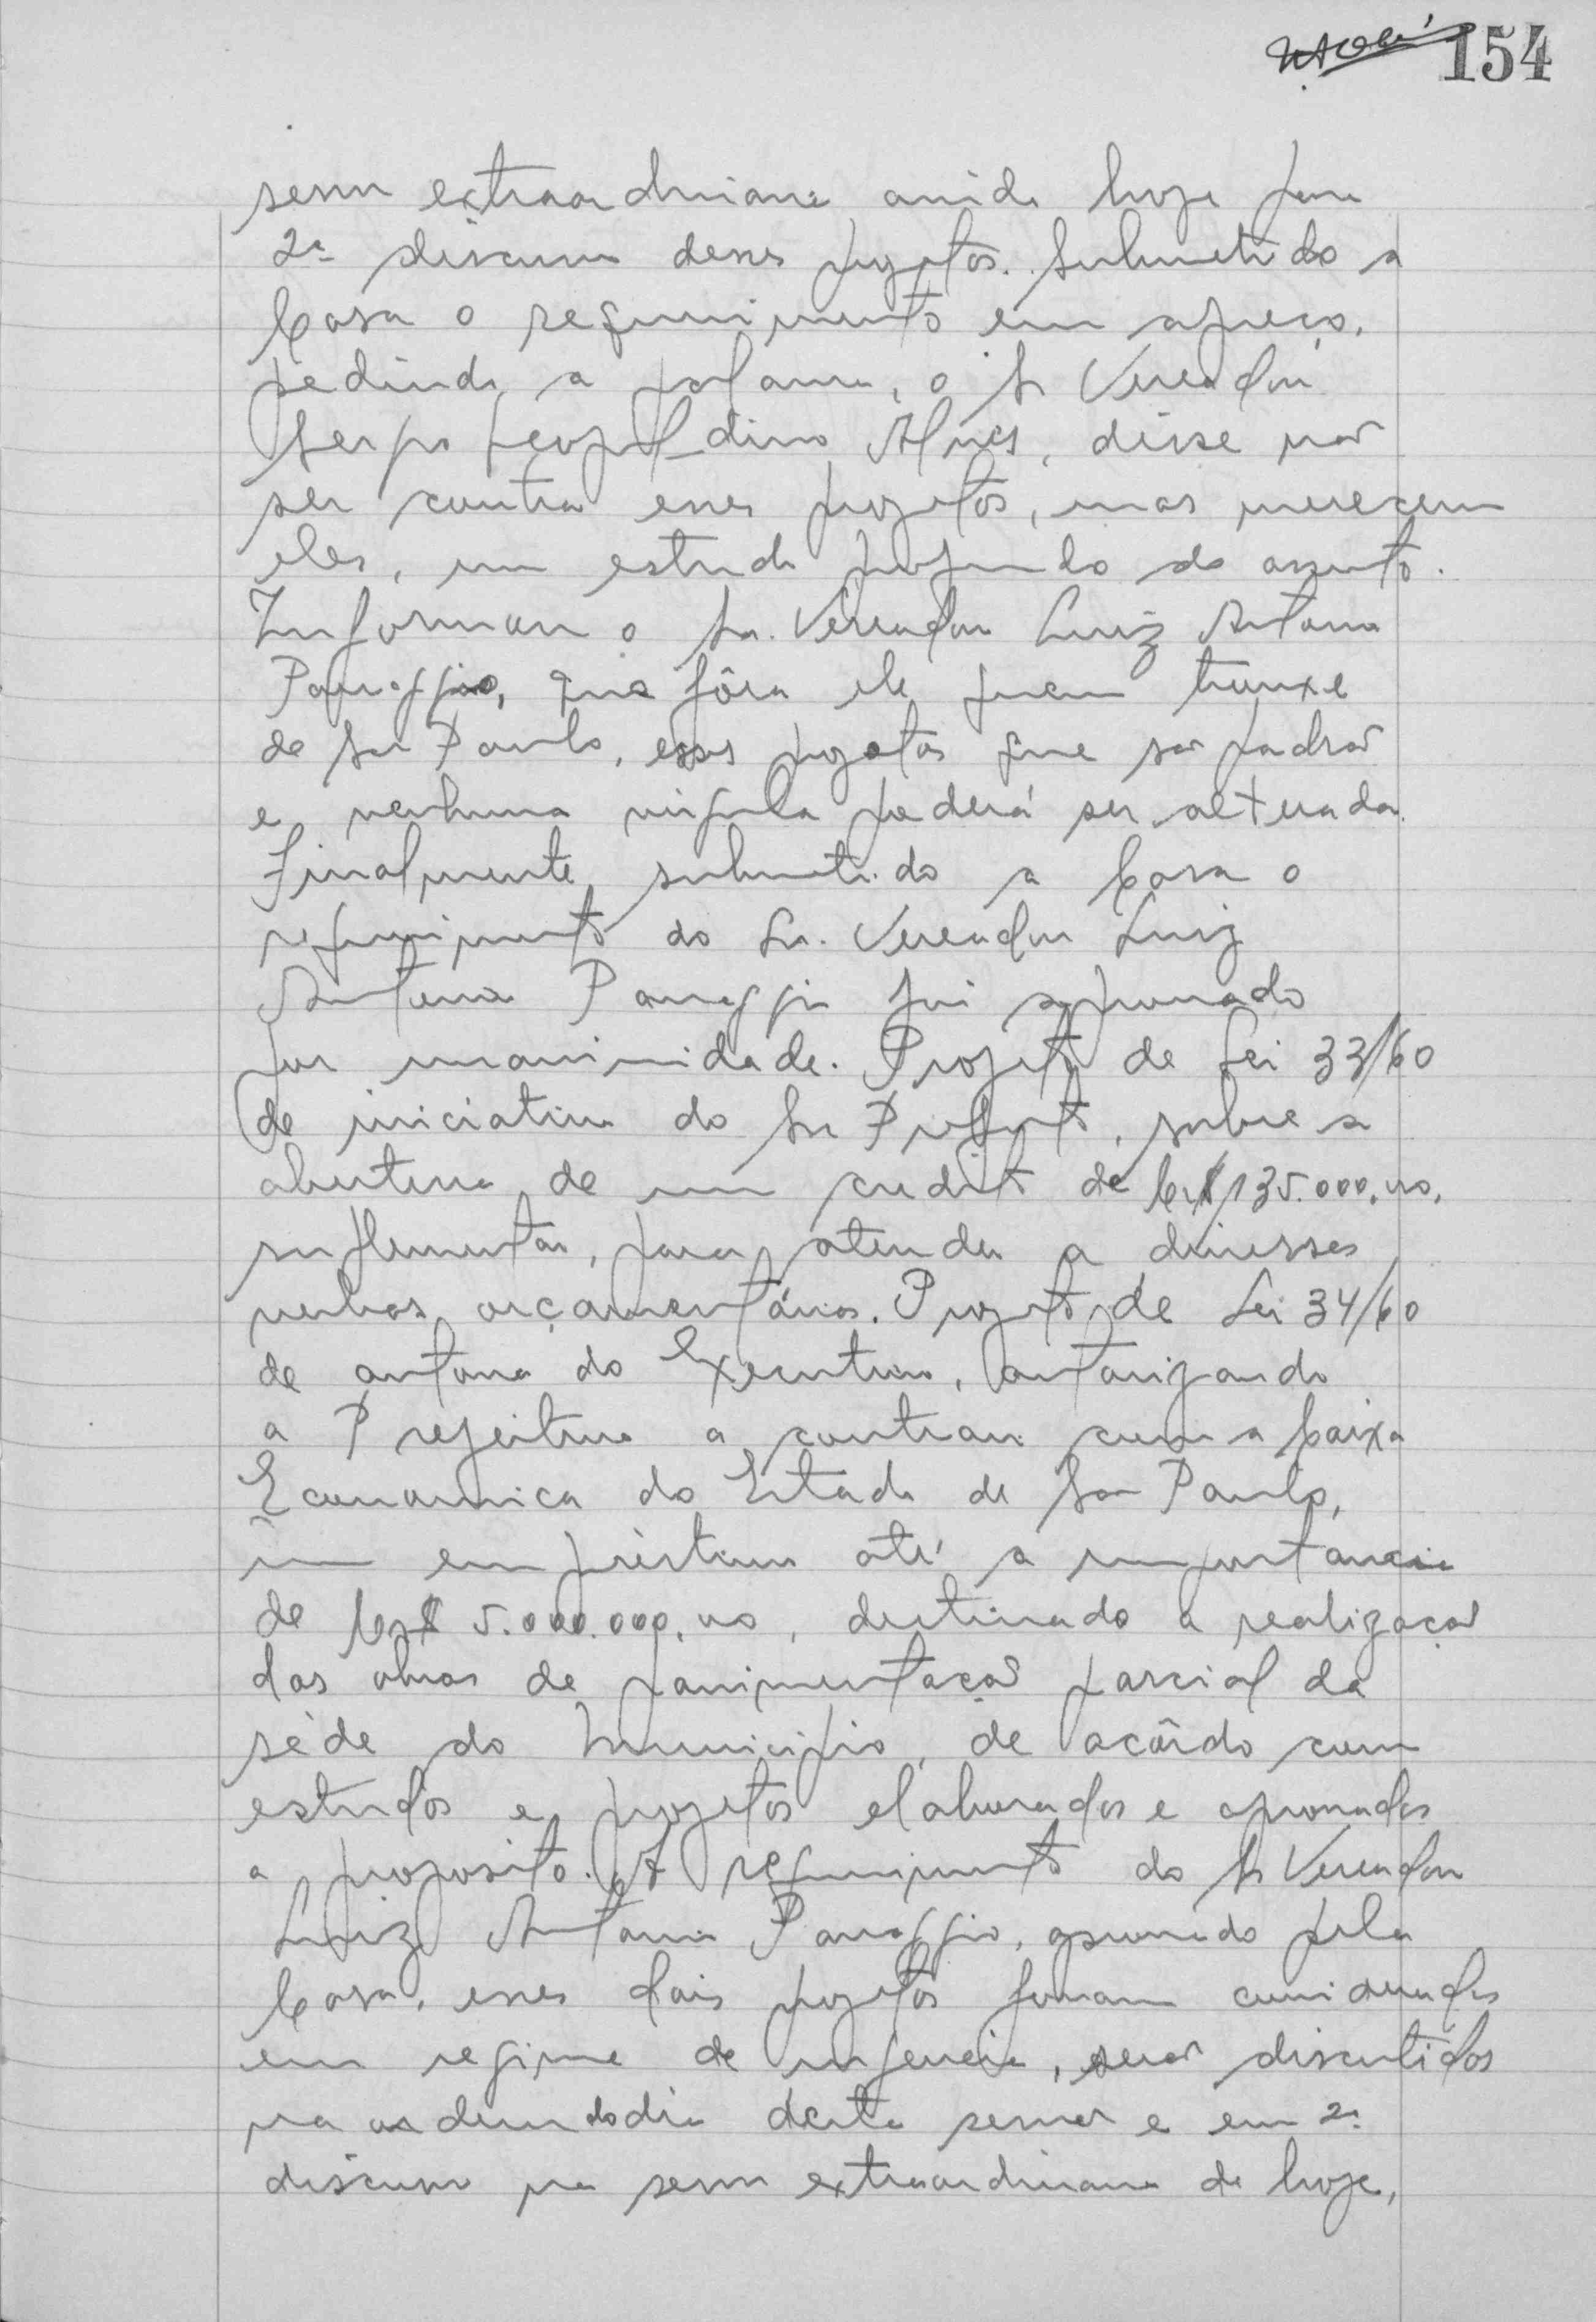 154
sessão extraordinaria ainda hoje para
2ª discussão desses projetos. Submetido a
Casa o requerimento em apreço,
pedindo a palavra, o Sr Vereador
Sergio Leopoldino Alves, disse não
ser contra esses projetos, mas merecem
eles, um estudo profundo do assunto.
Informou o Sr. Vereador Luiz Antonio
Panaggio, que fôra ele quem trouxe
de São Paulo, esses projetos que são padrão
e nenhuma virgula poderá ser alterada.
Finalmente submetido a Casa o
requerimento do Sr. Vereador Luiz
Antonio Panaggio foi aprovado
por unanimidade. Projeto de Lei 33/60
de iniciativa do Sr Prefeito, sobre a
abertura de um credito de Cr$ 135.000,00,
suplementar, para atender a diversas
verbas orçamentárias. Projeto de Lei 34/60
de autoria do Executivo, autorizando
a Prefeitura a contrair com a Caixa
Economica do Estado de São Paulo,
um empréstimo até a importancia
de Cr$ 5.000.000,00, destinado a realização
das obras de pavimentação parcial da
séde do Municipio, de acôrdo com
estudos e projetos elaborados e aprovados
a proposito. A requerimento do Sr Vereador
Luiz Antonio Panaggio, aprovado pela
Casa, esses dois projetos foram considerados
em regime de urgencia, serão discutidos
na ordem do dia desta sessão e em 2ª
discussão na sessão extraordinaria de hoje,